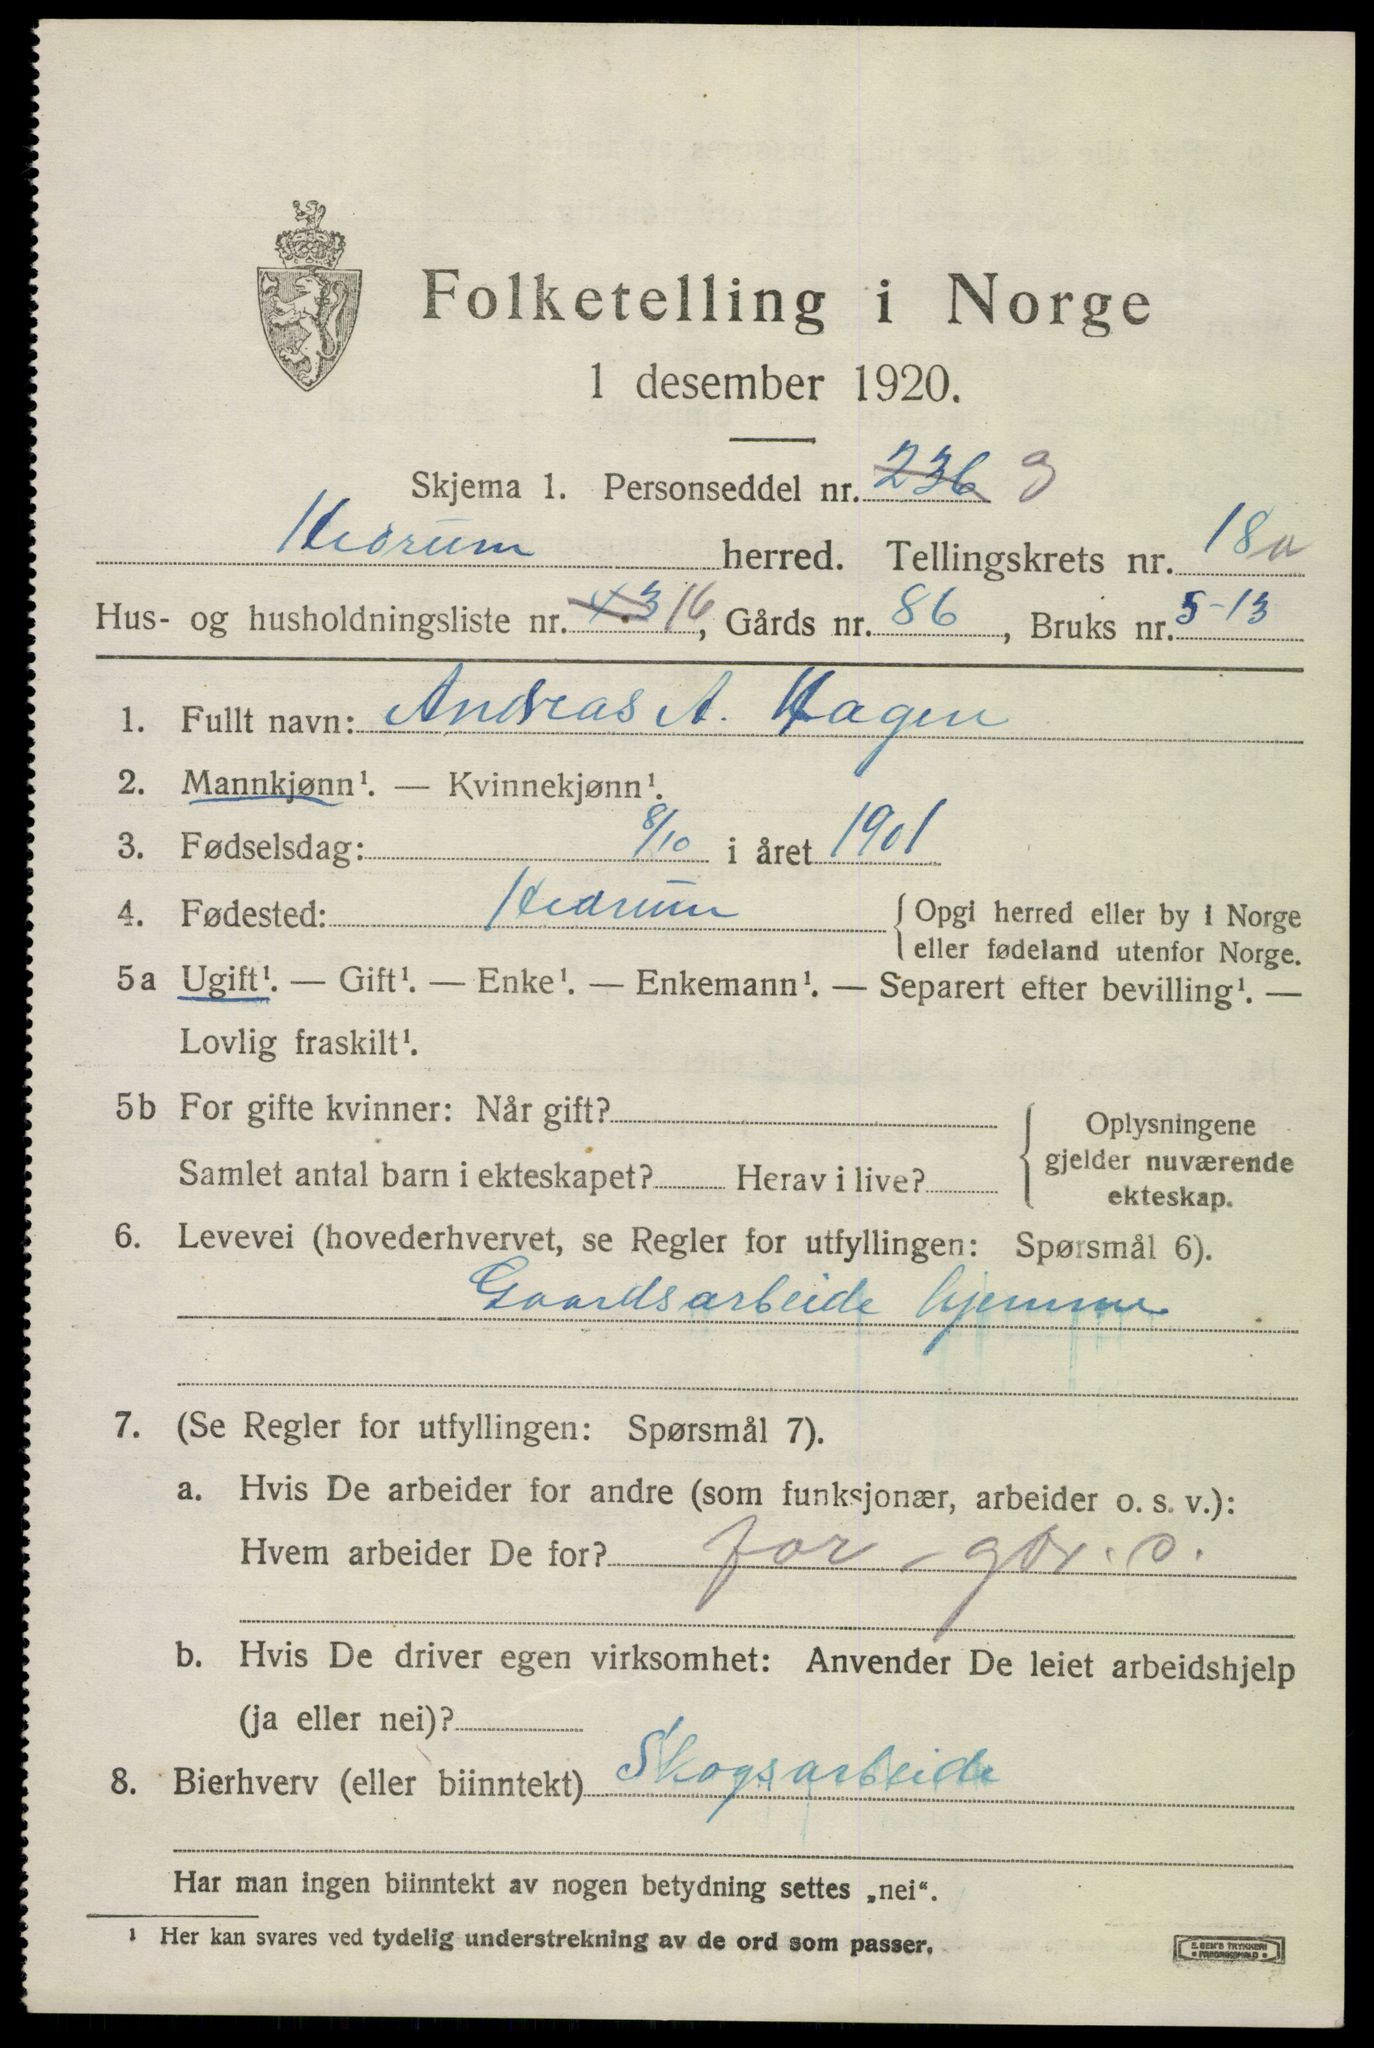 Folketelling i Norge
1 desember 1920.
Skjema 1. Personseddel nr. 236 9
Hedrum herred. Tellingskrets nr. 18a
Hus- og husholdningsliste nr. 43 16, Gårds nr. 86, Bruks nr. 5-13
1. Fullt navn: Andreas A. Hagen
2. Mannkjønn¹. — Kvinnekjønn¹.
3. Fødselsdag: 8/10 i året 1901
4. Fødested: Hedrum { Opgi herred eller by i Norge
eller fødeland utenfor Norge.
5a Ugift¹. — Gift¹. — Enke¹. — Enkemann¹. — Separert efter bevilling¹. —
Lovlig fraskilt¹.
5b For gifte kvinner: Når gift?
Samlet antal barn i ekteskapet? Herav i live?
Oplysningene
gjelder nuværende
ekteskap.
6. Levevei (hovederhvervet, se Regler for utfyllingen: Spørsmål 6).
Gaardsarbeide hjemme
7. (Se Regler for utfyllingen: Spørsmål 7).
a. Hvis De arbeider for andre (som funksjonær, arbeider o. s. v.):
Hvem arbeider De for? far
b. Hvis De driver egen virksomhet: Anvender De leiet arbeidshjelp
(ja eller nei)?
8. Bierhverv (eller biinntekt) Skogsarbeide
Har man ingen biinntekt av nogen betydning settes „nei“.
¹ Her kan svares ved tydelig understrekning av de ord som passer.